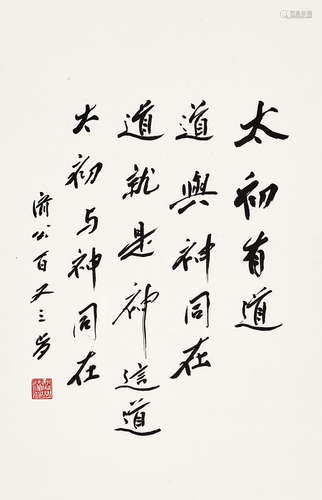 太初有道
道與神同在
道就是神這道
太初与神同在
濟公百又三岁